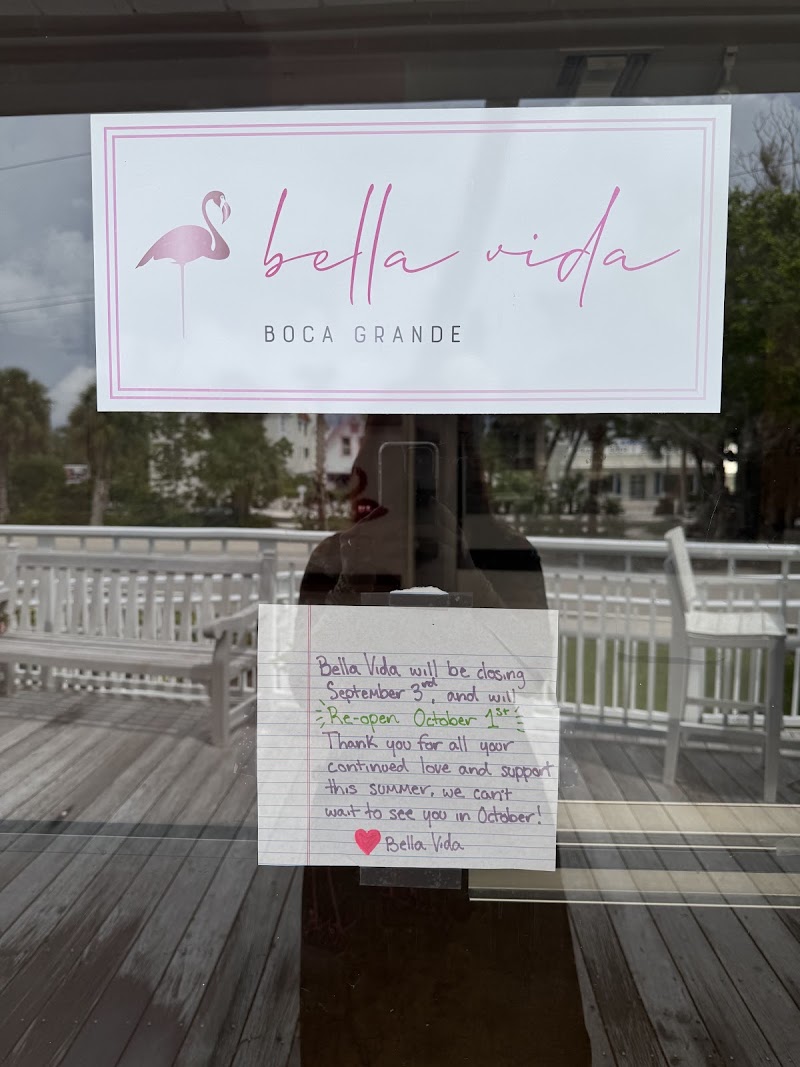 bella vida
BOCA GRANDE
Bella Vida will be closing
September 3rd, and will
Re-open October 1st
Thank you for all your
continued love and support
this summer, we can't
wait to see you in October!
Bella Vida